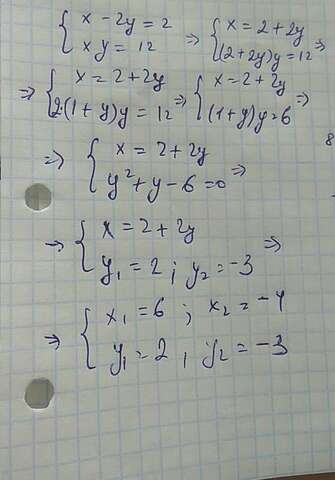 { x - 2y = 2 ; xy = 12 ⇒ { x = 2 + 2y ; (2+2y)y = 12 ⇒
⇒ { x = 2 + 2y ; 2·(1+y)y = 12 ⇒ { x = 2 + 2y ; (1+y)y = 6
⇒ { x = 2 + 2y ; y² + y - 6 = 0 ⇒
→ { x = 2 + 2y ; y₁ = 2 ; y₂ = -3 ⇒
⇒ { x₁ = 6 ; x₂ = -4 ; y₁ = 2 , y₂ = -3
8